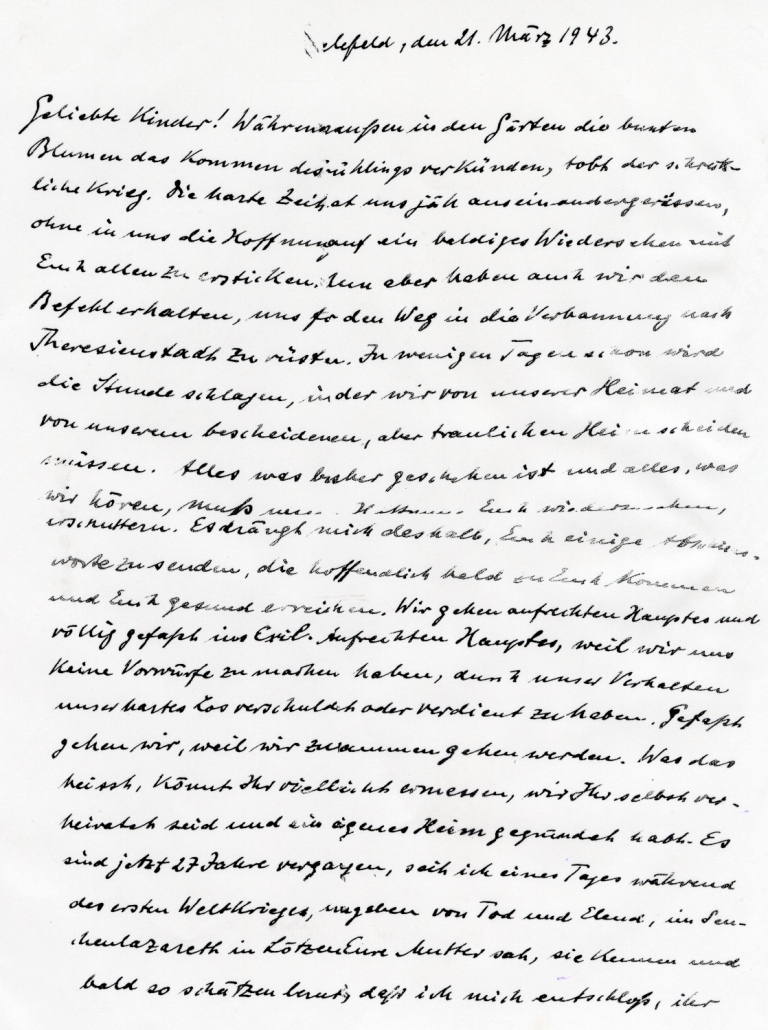 elefeld, den 21. März 1943.
Geliebte Kinder! Während aussen in den Gärten die bunten
Blumen das Kommen des ühlings verkünden, tobt der schreck-
liche Krieg. Die harte Zeit hat uns jäh auseinandergerissen,
ohne in uns die Hoffnung auf ein baldiges Wiedersehen mit
Euch allen zu ersticken. Nun aber haben auch wir den
Befehl erhalten, uns für den Weg in die Verbannung nach
Theresienstadt zu rüsten. In wenigen Tagen schon wird
die Stunde schlagen, in der wir von unserer Heimat und
von unserem bescheidenen, aber traulichen Heim scheiden
müssen. Alles was bisher geschehen ist und alles, was
wir hören, muß Euch wiederzusehen,
erschüttern. Es drängt mich deshalb, Euch einige Abschieds-
worte zu senden, die hoffendlich bald zu Euch kommen
und Euch gesund erreichen. Wir gehen aufrechten Hauptes und
völlig gefaßt ins Exil. Aufrechten Hauptes, weil wir uns
keine Vorwürfe zu machen haben, durch unser Verhalten
unser hartes Los verschuldet oder verdient zu haben. Gefaßt
gehen wir, weil wir zusammen gehen werden. Was das
heisst, könnt Ihr vielleicht ermessen, wir Ihr selbst ver-
heiratet seid und ein eigenes Heim gegründet habt. Es
sind jetzt 27 Jahre vergangen, seit ich eines Tages während
des ersten Weltkrieges, umgeben von Tod und Elend, im Seu-
chenlazareth in Lötzen Eure Mutter sah, sie kennen und
bald so schätzen lernte, daß ich mich entschloß, ihr